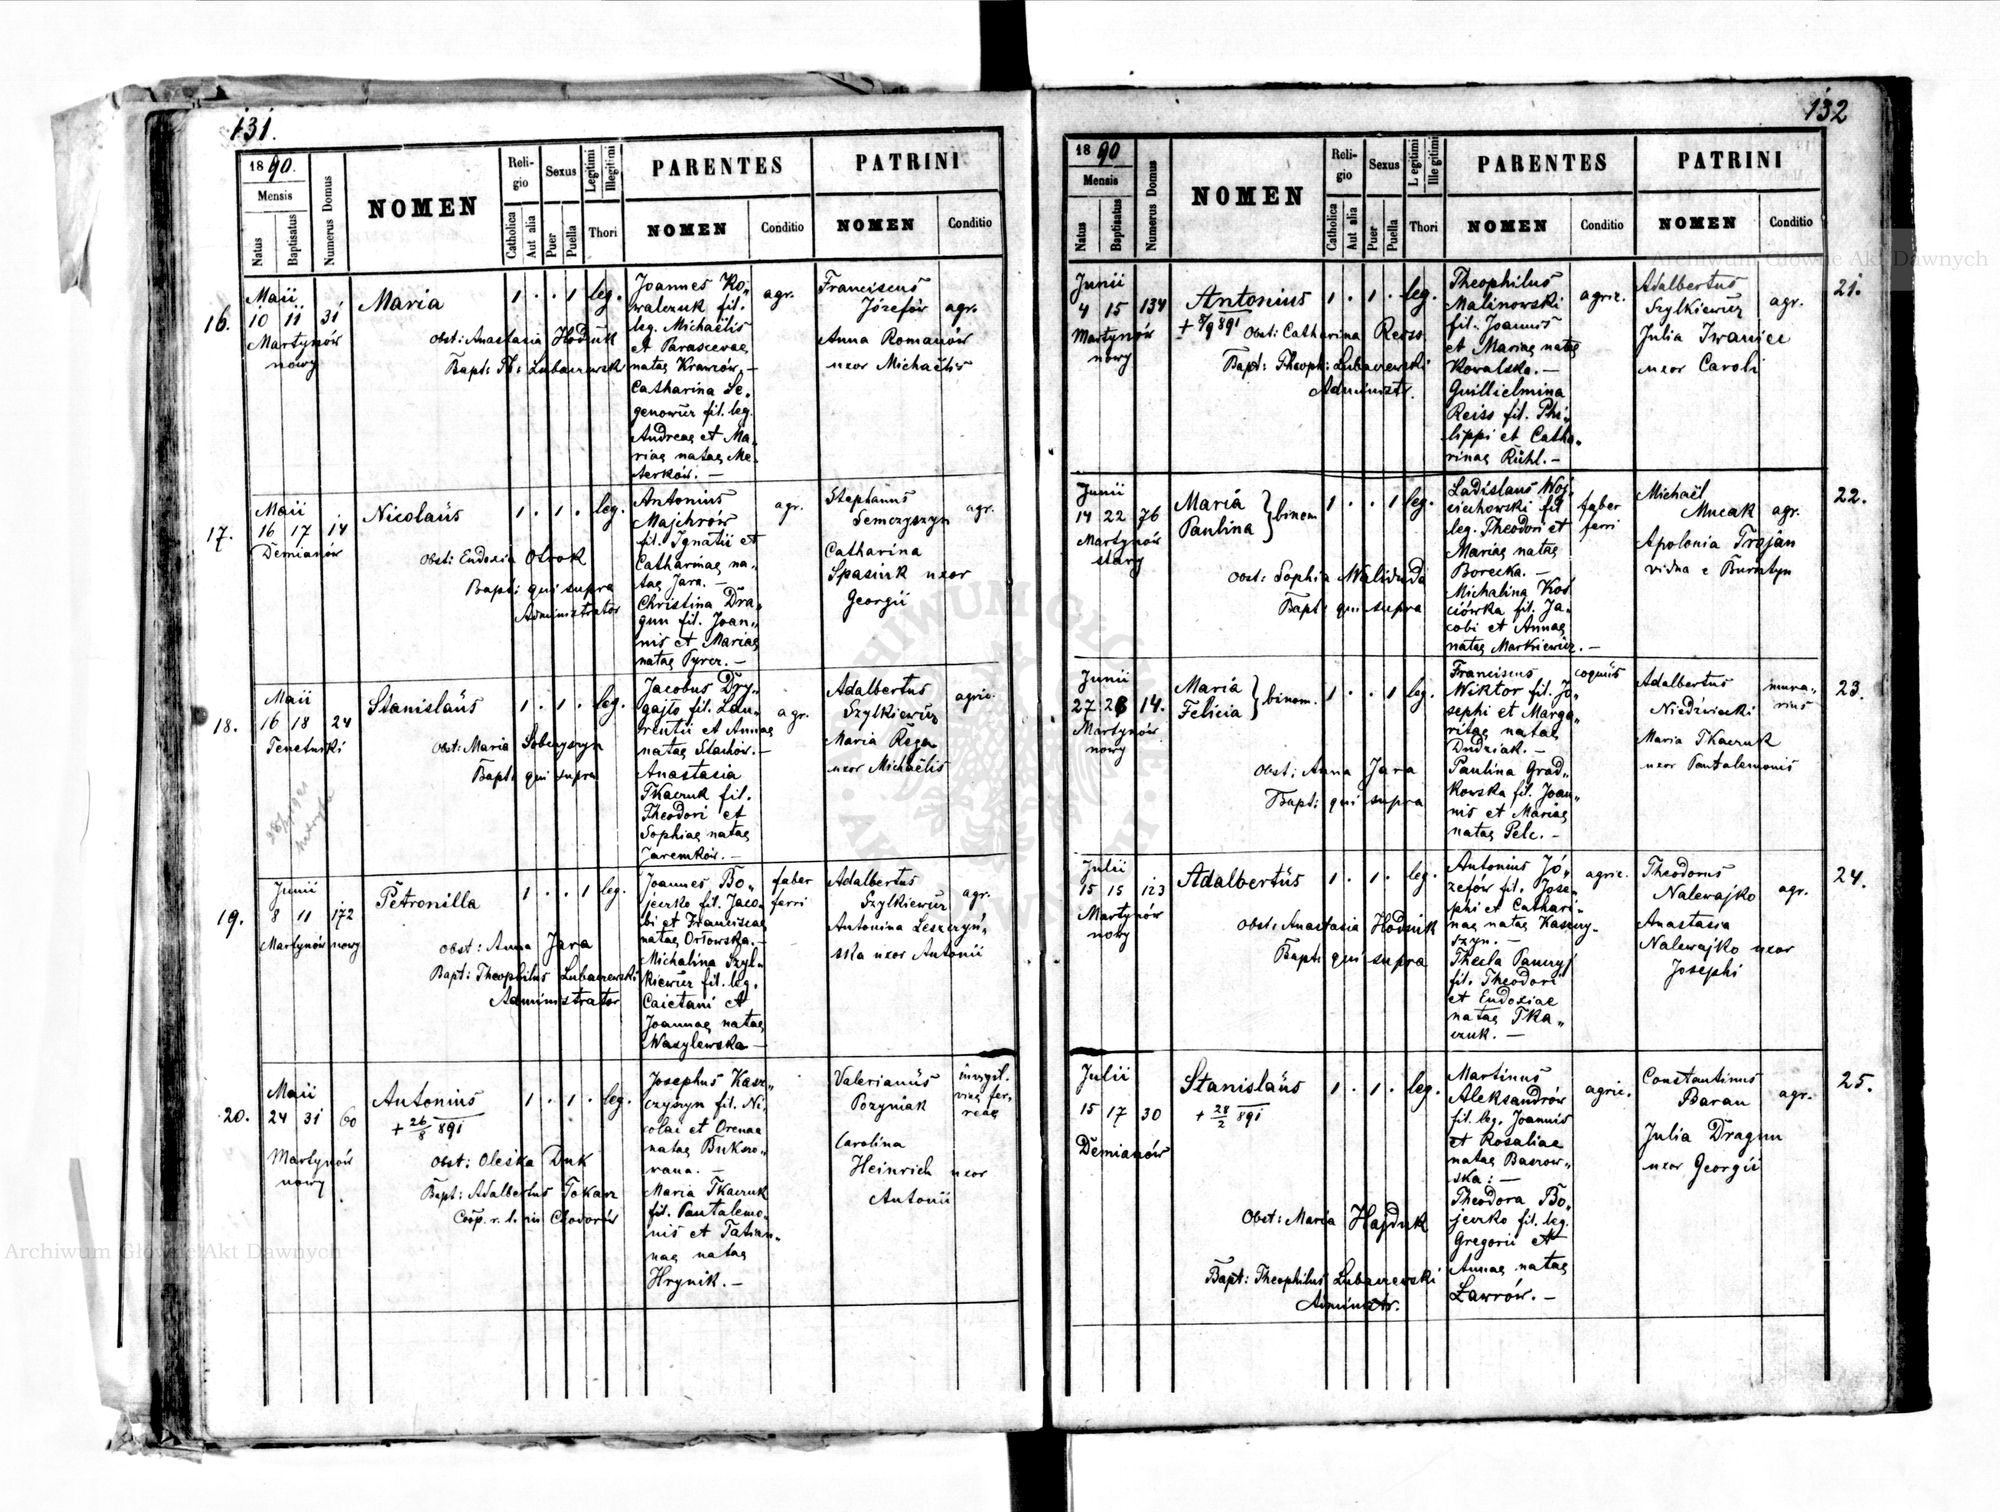 131.
1890.
Mensis
Natus
Baptisatus
Numerus Domus
NOMEN
Religio
Catholica
Aut alia
Sexus
Puer
Puella
Legitimi
Illegitimi
Thori
PARENTES
NOMEN
Conditio
PATRINI
NOMEN
Conditio
16.
Maii
10 11 31
Martynów
nowy
Maria
1 . . 1 leg.
Obst: Anastasia Hodiuk
Bapt: Th: Lubaczewsk
Joannes Ko-
walczuk fil.
leg. Michaëlis
et Parascevae
natae Krawców. —
Catharina Se-
genowicz fil. leg.
Andreae et Ma-
riae natae Me-
terków. —
agr.
Franciscus
Józefów agr.
Anna Romanów
uxor Michaëlis
17.
Maii
16 17 14
Demianów
Nicolaüs
1 . 1 . leg.
Obst: Eudoxia Otrok
Bapt: qui supra
Administrator
Antonius
Majchrów
fil. Ignatii et
Catharinae na-
tae Jara. —
Christina Dra-
gun fil. Joan-
nis et Mariae
natae Pyrcz. —
agr.
Stephanus
Semczyszyn agr.
Catharina
Spasiuk uxor
Georgii
18.
Maii
16 18 24
Tenetniki
Stanislaüs
1 . 1 . leg.
Obst: Maria Sobczyszyn
Bapt: qui supra
Jacobus Dry-
gajto fil. Lau-
rentii et Annae
natae Stachów. —
Anastasia
Tkaczuk fil.
Theodori et
Sophiae natae
Jaremków. —
agr.
Adalbertus
Szylkiewicz agric.
Maria Rega
uxor Michaëlis
19.
Junii
8 11 172
Martynów nowy
Petronilla
1 . . 1 leg.
Obst: Anna Jara
Bapt: Theophilus Lubaczewski
Administrator
Joannes Bo-
jeczko fil. Jaco-
bi et Franciscae
natae Orłowska. —
Michalina Szyl-
kiewicz fil. leg.
Caietani et
Joannae natae
Wasylewska —
faber
ferri
Adalbertus
Szylkiewicz agr.
Antonina Leszczyń-
ska uxor Antonii
20.
Maii
24 31 60
Martynów
nowy
Antonius
+ 26/8 891
1 . 1 . leg.
Obst: Oleśka Duk
Bapt: Adalbertus Tokarz
Coop. r. l. in Chodorów
Josephus Kasz-
czyszyn fil. Ni-
colai et Orenae
natae Bukszo-
wana. —
Maria Tkaczuk
fil. Pantalemo-
nis et Tatian-
nae natae
Hrynik. —
Valerianus
Pozyniak
Carolina
Heinrich uxor
Antonii
132
1890
Mensis
Natus
Baptisatus
Numerus Domus
NOMEN
Religio
Catholica
Aut alia
Sexus
Puer
Puella
Legitimi
Illegitimi
Thori
PARENTES
NOMEN
Conditio
PATRINI
NOMEN
Conditio
Junii
4 15 134
Martynów
nowy
Antonius
+ 8/9 891
1 . 1 . leg.
Obst: Catharina Reiss
Bapt: Theoph: Lubaczewski
Administr.
Theophilus
Malinowski
fil. Joannis
et Mariae natae
Kowalska. —
Guillielmina
Reiss fil. Phi-
lippi et Catha-
rinae Rühl. —
agric.
Adalbertus
Szylkiewicz agr.
Julia Iwaniec
uxor Caroli
21.
Junii
14 22 76
Martynów
stary
Maria
Paulina } binom
1 . . 1 leg.
Obst: Sophia Waliduda
Bapt: qui supra
Ladislaus Woj-
ciechowski fil
leg. Theodori et
Mariae natae
Borecka. —
Michalina Koś-
ciówka fil. Ja-
cobi et Annae
natae Markiewicz. —
faber
ferri
Michaël
Mucak agr.
Apolonia Trojan
vidua e Bursztyn
22.
Junii
27 28 14.
Martynów
nowy
Maria
Felicia } binom.
1 . . 1 leg.
Obst: Anna Jara
Bapt: qui supra
Franciscus
Wiktor fil. Jo-
sephi et Marga-
ritae natae
Dudziak. —
Paulina Grad-
kowska fil. Joan-
nis et Mariae
natae Pelc. —
coquus
Adalbertus
Niedźwiecki
Maria Tkaczuk
uxor Pantalemonis
mura-
rius
23.
Julii
15 15 123
Martynów
nowy
Adalbertüs
1 . 1 . leg.
Obst: Anastasia Hodiuk
Bapt: qui supra
Antonius Jó-
zefów fil. Jose-
phi et Cathari-
nae natae Kaszczy-
szyn. —
Thecla
fil. Theodori
et Eudoxiae
natae Tka-
czuk. —
agric.
Theodorus
Nalewajko agr.
Anastasia
Nalewajko uxor
Josephi
24.
Julii
15 17 30
Demianów
Stanislaüs
+ 28/2 891
1 . 1 . leg.
Obst: Maria Hajduk
Bapt: Theophilus Lubaczewski
Administr.
Martinus
Aleksandrów
fil. leg. Joannis
et Rosaliae
natae Baszow-
ska: —
Theodora Bo-
jeczko fil. leg.
Gregorii et
Annae natae
Ławrów. —
agric.
Constantinus
Baran agr.
Julia Dragun
uxor Georgii
25.
Archiwum Główne Akt Dawnych
Archiwum Główne Akt Dawnych